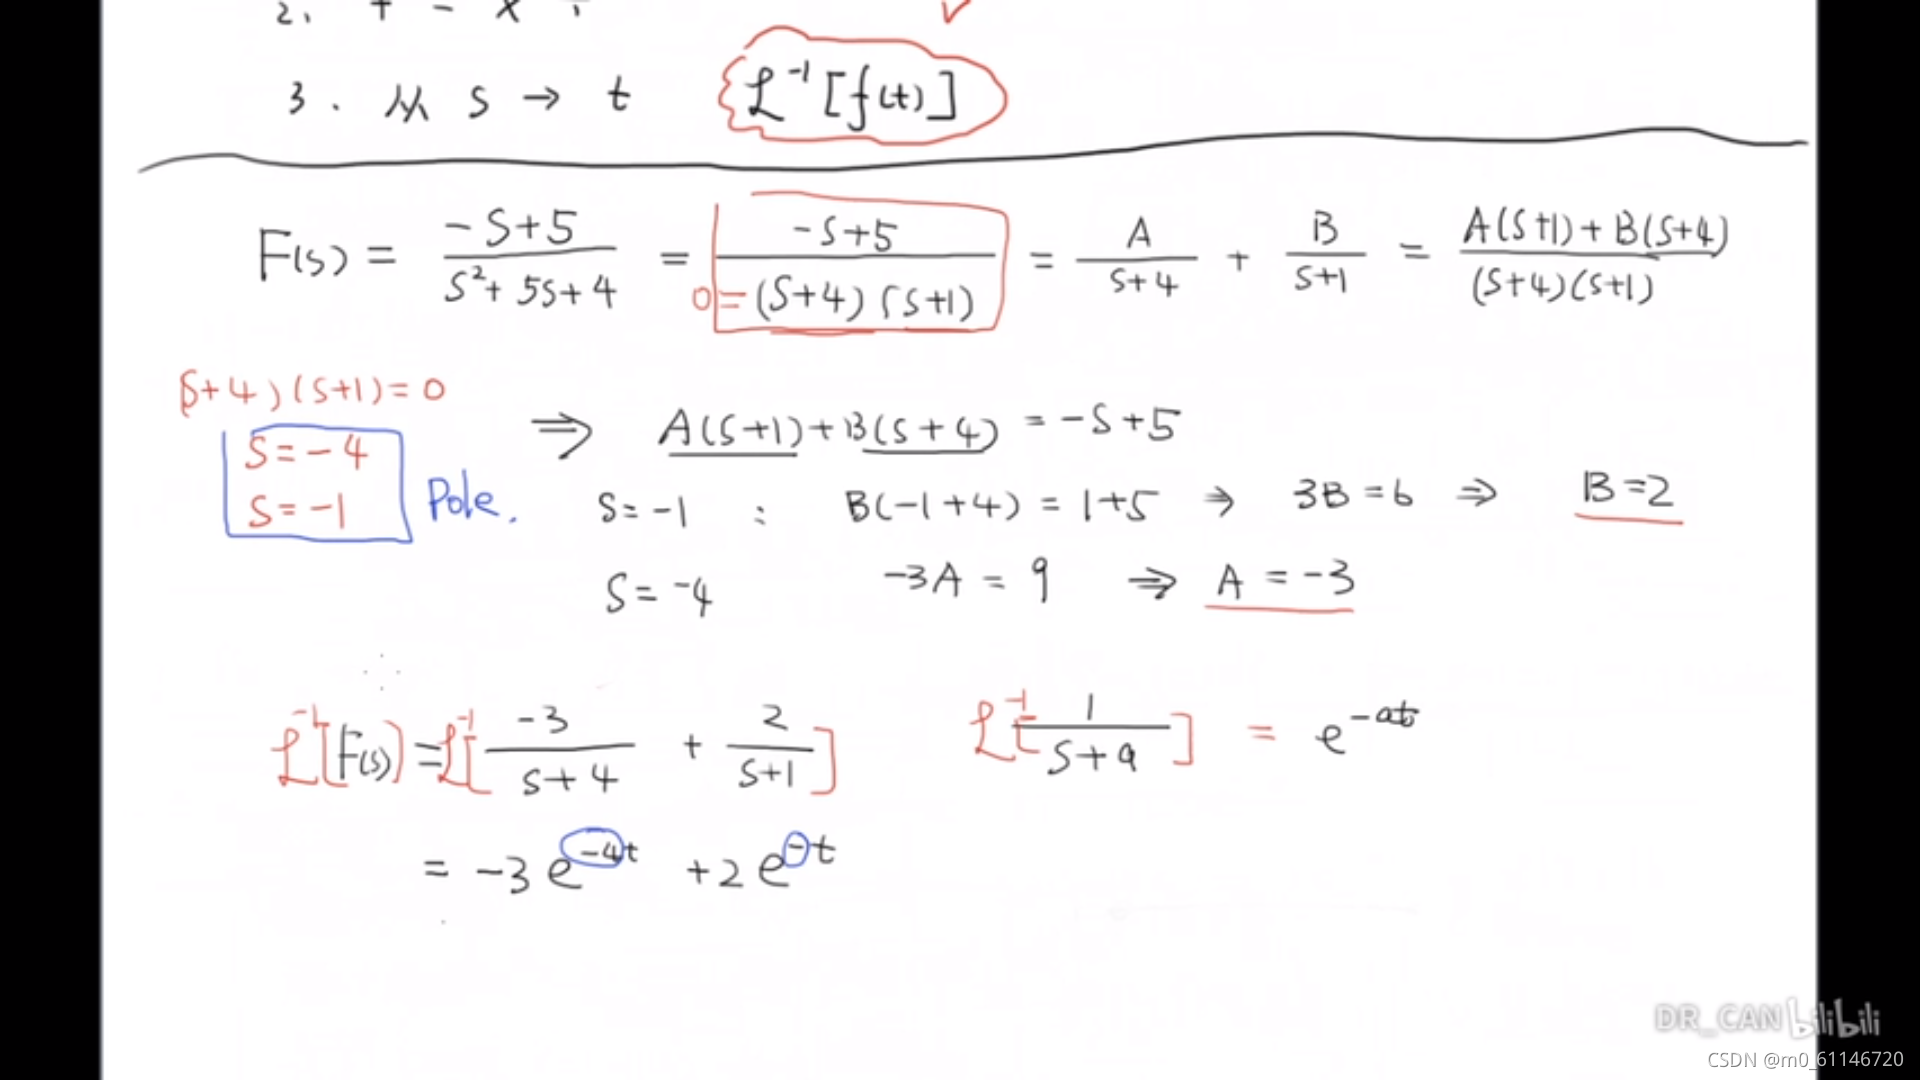 2. + - × ÷
3. 从 S → t ℒ⁻¹[f(t)]
F(s) = (-S+5)/(S²+5S+4) = (-S+5)/((S+4)(S+1)) = A/(S+4) + B/(S+1) = (A(S+1)+B(S+4))/((S+4)(S+1))
0=
(S+4)(S+1)=0
⇒ A(S+1)+B(S+4) = -S+5
S=-4
S=-1
Pole.
S=-1 : B(-1+4) = 1+5 ⇒ 3B=6 ⇒ B=2
S=-4 -3A = 9 ⇒ A = -3
ℒ⁻¹[F(s)] = ℒ⁻¹[-3/(S+4) + 2/(S+1)]
ℒ⁻¹[1/(S+a)] = e^(-at)
= -3e^(-4t) +2e^(-t)
DR_CAN bilibili
CSDN @m0_61146720